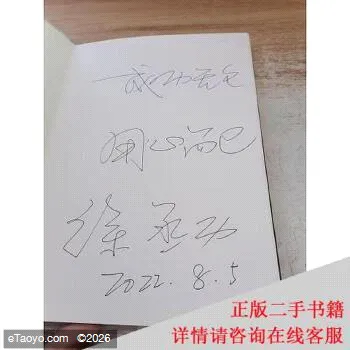 成功无它
用心而已
徐 功
2022.8.5
正版二手书籍
详情请咨询在线客服
eTaoyo.com ©2026